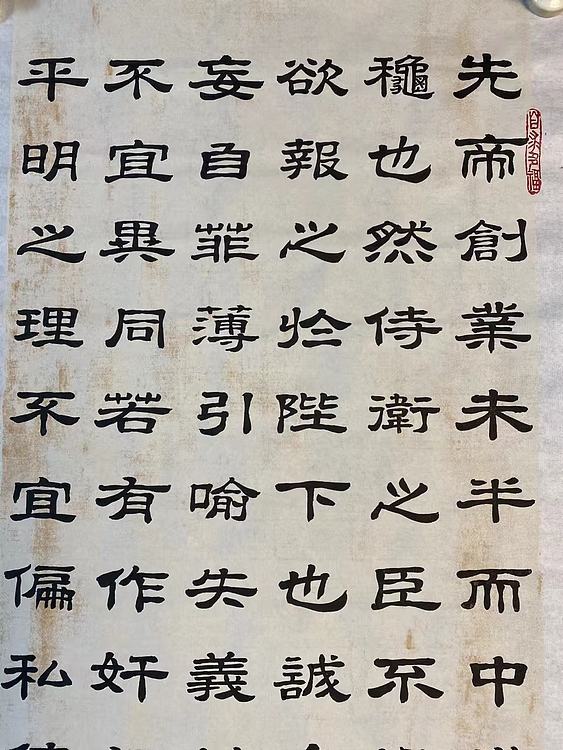 先帝創業未半而中
龝也然侍衛之臣不
欲報之於陛下也誠
妄自菲薄引喻失義
不宜異同若有作奸
平明之理不宜偏私